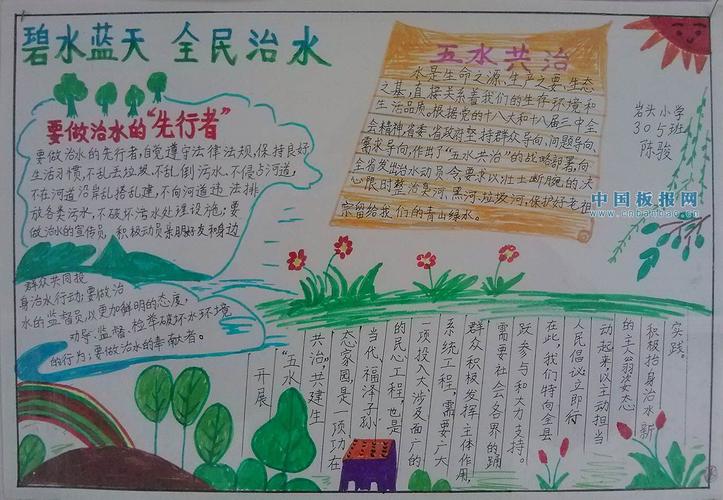 碧水蓝天 全民治水
要做治水的“先行者”
要做治水的先行者,自觉遵守法律法规,保持良好
生活习惯,不乱丢垃圾、不乱倒污水、不侵占河道,
不在河道沿岸乱搭乱建,不向河道违法排
放各类污水,不破坏污水处理设施;要
做治水的宣传员 积极动员亲朋好友和身边
群众共同投
身治水行动;要做治
水的监督员,以更加鲜明的态度,
劝导、监督、检举破坏水环境
的行为;要做治水的奉献者。
五水共治
水是生命之源,生产之要,生态
之基,直接关系着我们的生存环境和
生活品质。根据党的十八大和十八届三中全
会精神,省委、省政府坚持群众导向、问题导向、
需求导向,作出了“五水共治”的战略部署,向
全省发出治水动员令,要求以壮士断腕的决
心限时整治臭河、黑河、垃圾河,保护好老祖
宗留给我们的青山绿水。
岩头小学
305班
陈骏
中国板报网
www.cnbanbao.cn
开展
“五水
共治”,共建生
态家园,是一项功在
当代、福泽子孙
的民心工程,也是
一项投入大涉及面广的
系统工程,需要广大
群众积极发挥主体作用,
需要社会各界的踊
跃参与和大力支持。
在此,我们特向全县
人民倡议立即行
动起来,以主动担当
的主人翁姿态
积极抬身治水新
实践。